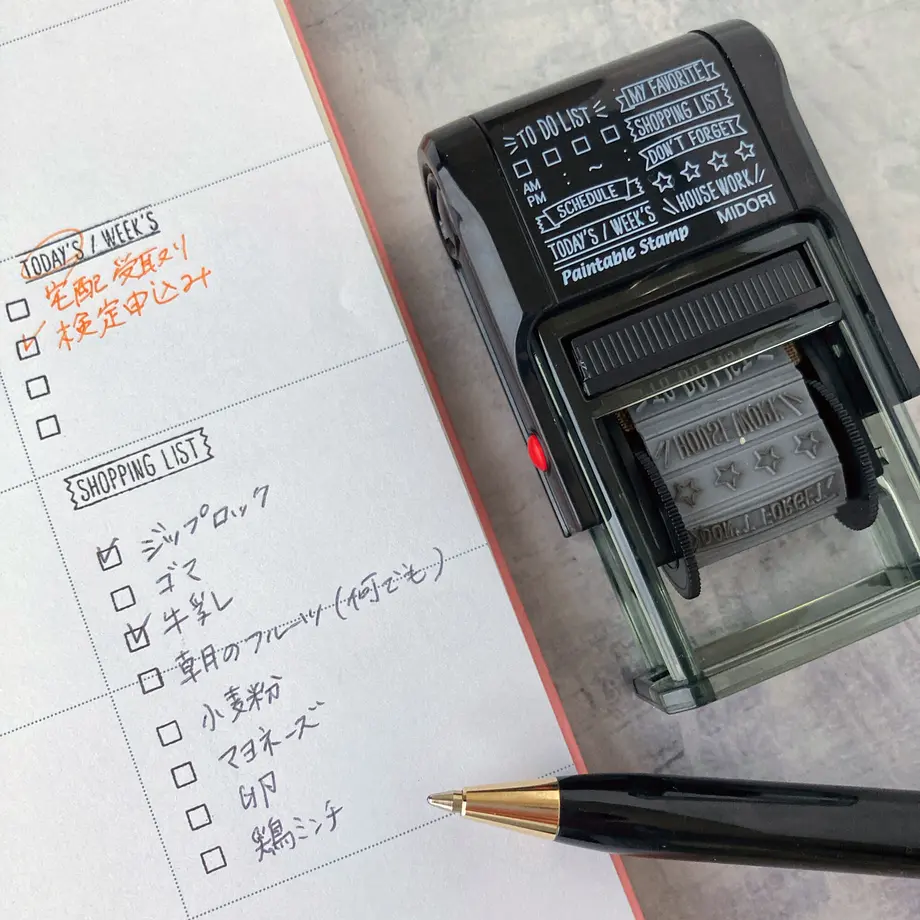 TODAY'S / WEEK'S
宅配受取り
検定申込み
SHOPPING LIST
ジップロック
ゴマ
牛乳
朝月のフルーツ(何でも)
小麦粉
マヨネーズ
卵
鶏ミンチ
TO DO LIST
AM
PM
: ~ :
SCHEDULE
TODAY'S / WEEK'S
MY FAVORITE
SHOPPING LIST
DON'T FORGET
HOUSEWORK
Paintable Stamp
MIDORI
TO DO LIST
HOUSEWORK
DON'T FORGET